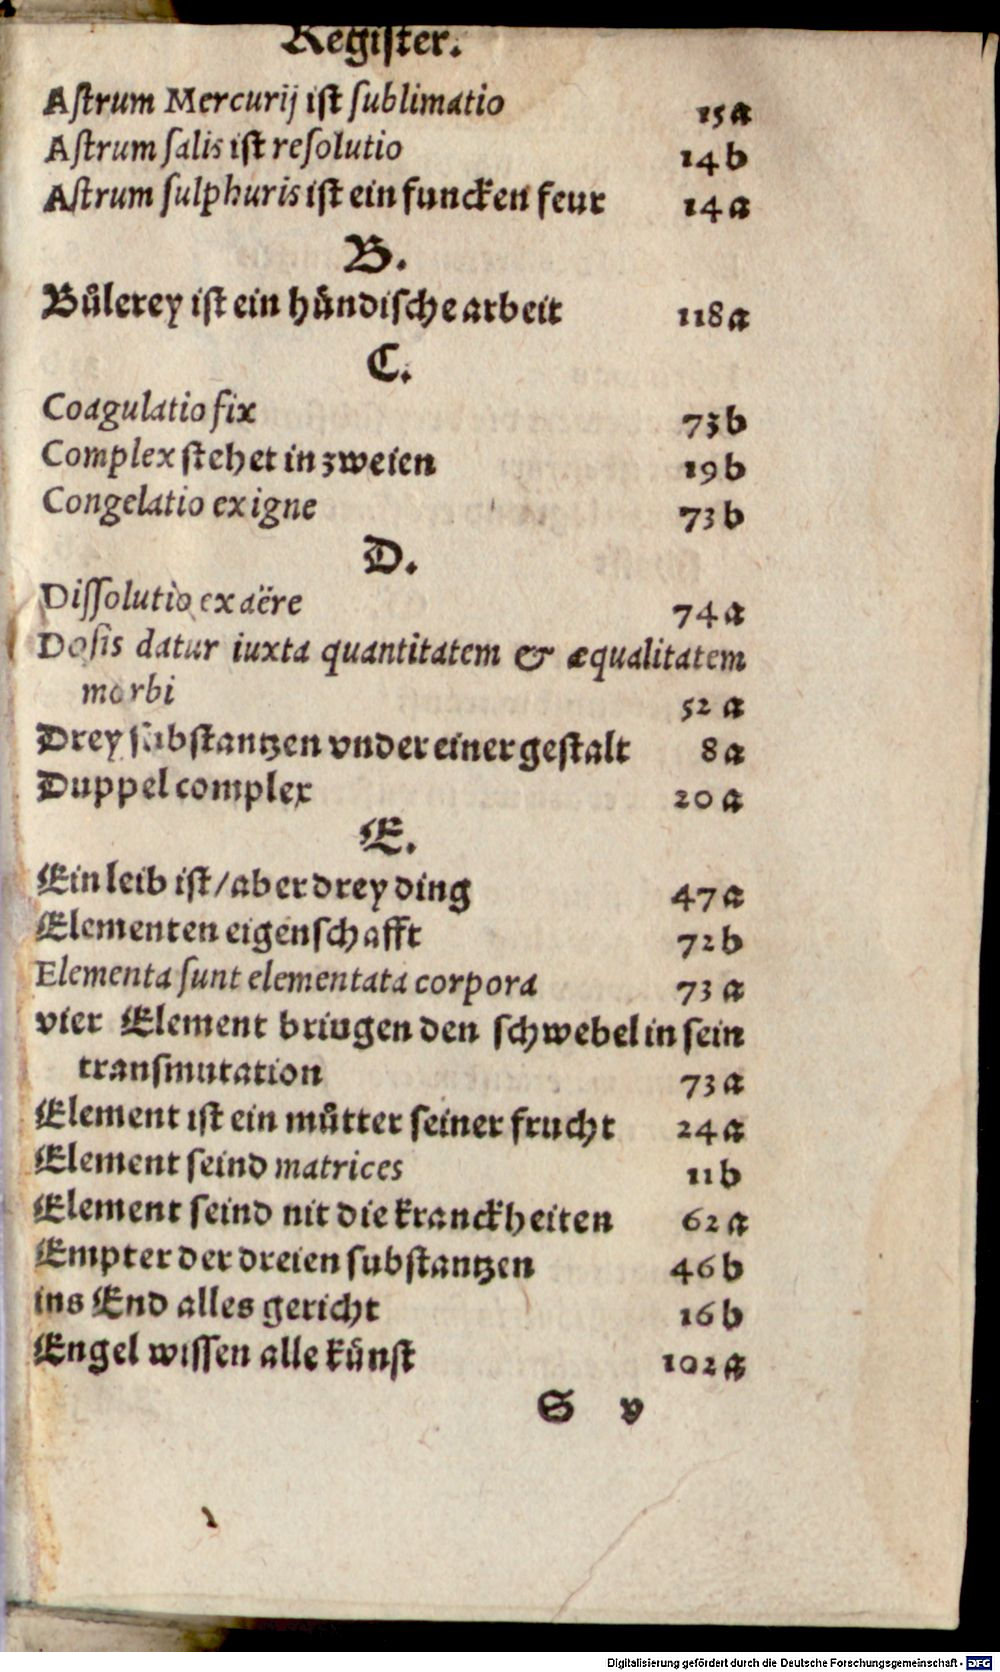 Register.
Aſtrum Mercurij iſt ſublimatio 15 a
Aſtrum ſalis iſt reſolutio 14 b
Aſtrum ſulphuris iſt ein funcken feur 14 a
B.
Bůlerey iſt ein hündiſche arbeit 118 a
C.
Coagulatio fix 73 b
Complex ſtehet in zweien 19 b
Congelatio ex igne 73 b
D.
Diſſolutio ex aëre 74 a
Doſis datur iuxta quantitatem & æqualitatem
morbi 52 a
Drey ſubſtantzen vnder einer geſtalt 8 a
Duppel complex 20 a
E.
Ein leib iſt/ aber drey ding 47 a
Elementen eigenſchafft 72 b
Elementa ſunt elementata corpora 73 a
vier Element briugen den ſchwebel in ſein
transmutation 73 a
Element iſt ein můtter ſeiner frucht 24 a
Element ſeind matrices 11 b
Element ſeind nit die kranckheiten 62 a
Empter der dreien ſubſtantzen 46 b
ins End alles gericht 16 b
Engel wiſſen alle künſt 102 a
S v
Digitalisierung gefördert durch die Deutsche Forschungsgemeinschaft - DFG